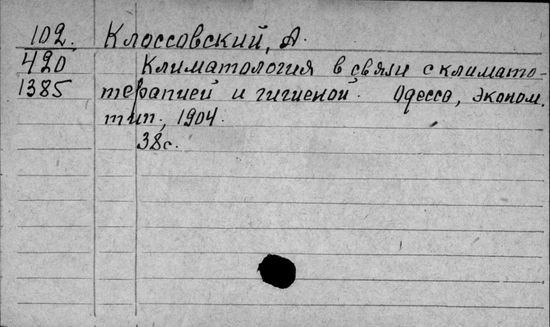 102. Клоссовский, А.
420 Климатология в связи с климато-
1385 терапией и гигиеной. Одесса, эконом.
тип., 1904.
38с.